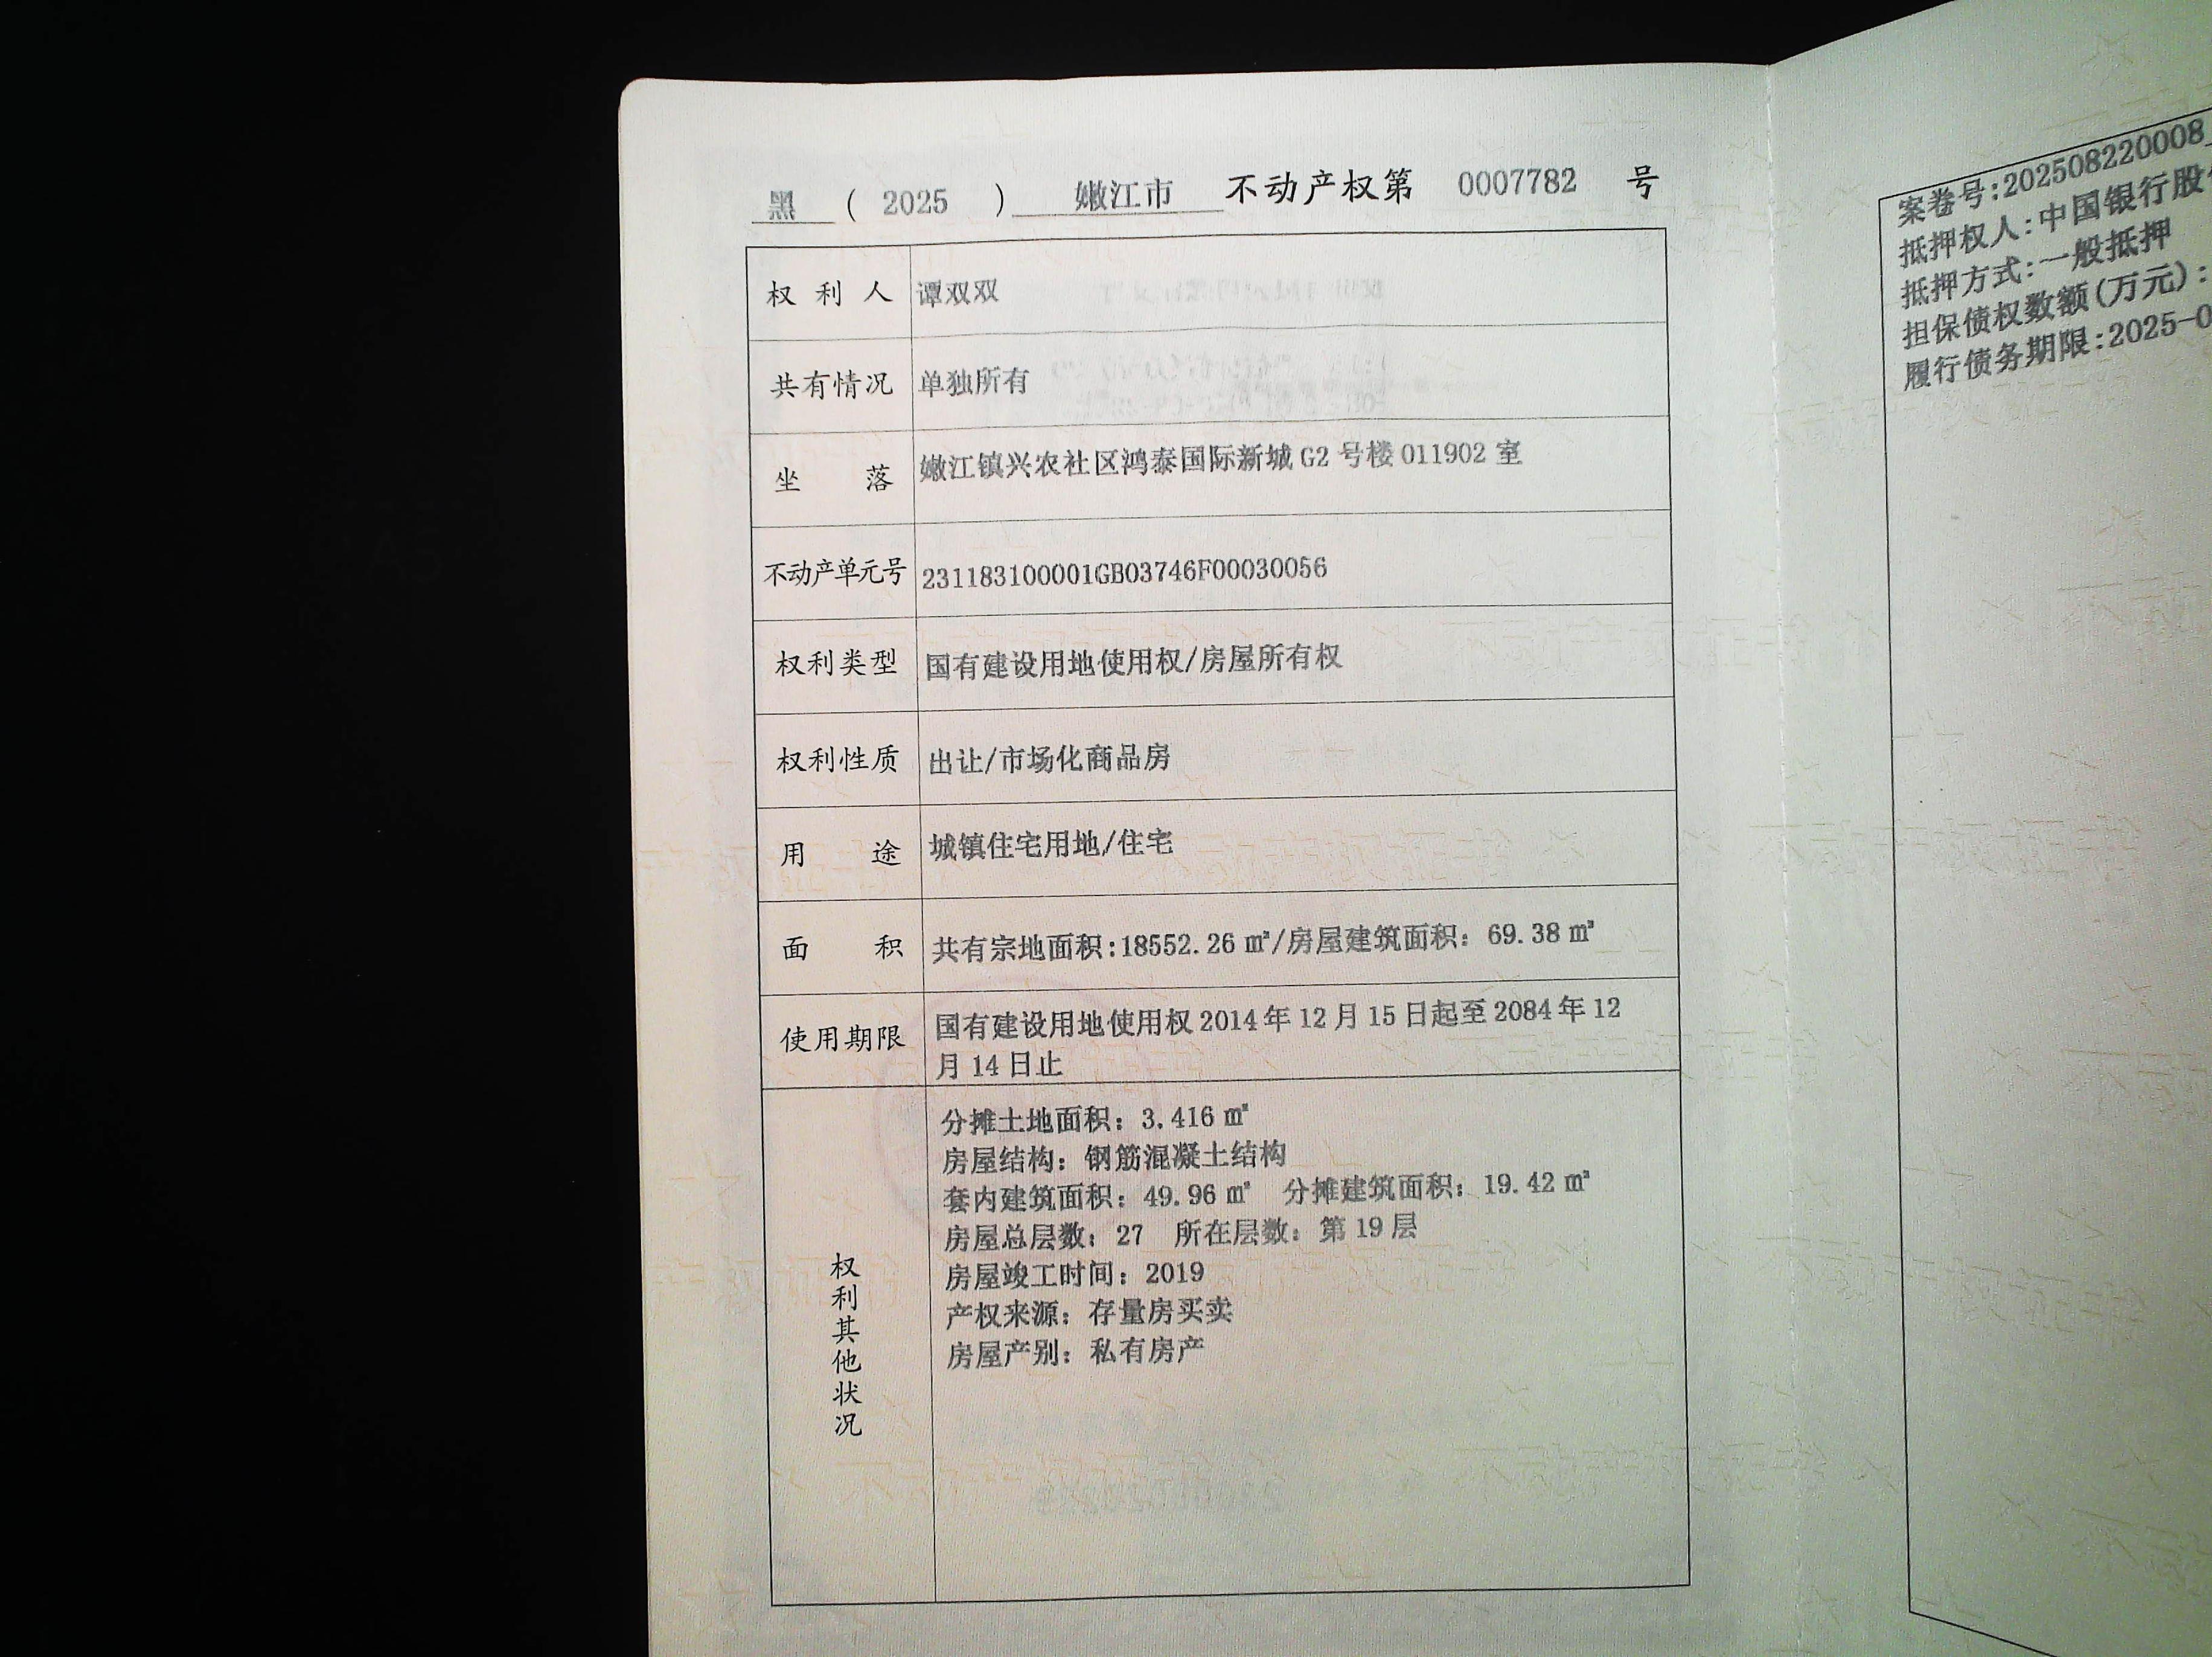 黑 ( 2025 ) 嫩江市 不动产权第 0007782 号
权利人 谭双双
共有情况 单独所有
坐落 嫩江镇兴农社区鸿泰国际新城G2号楼011902室
不动产单元号 231183100001GB03746F00030056
权利类型 国有建设用地使用权/房屋所有权
权利性质 出让/市场化商品房
用途 城镇住宅用地/住宅
面积 共有宗地面积:18552.26㎡/房屋建筑面积：69.38㎡
使用期限 国有建设用地使用权2014年12月15日起至2084年12
月14日止
权利其他状况
分摊土地面积：3.416㎡
房屋结构：钢筋混凝土结构
套内建筑面积：49.96㎡ 分摊建筑面积：19.42㎡
房屋总层数：27 所在层数：第19层
房屋竣工时间：2019
产权来源：存量房买卖
房屋产别：私有房产
案卷号:202508220008
抵押权人:中国银行股
抵押方式:一般抵押
担保债权数额(万元):
履行债务期限:2025-0